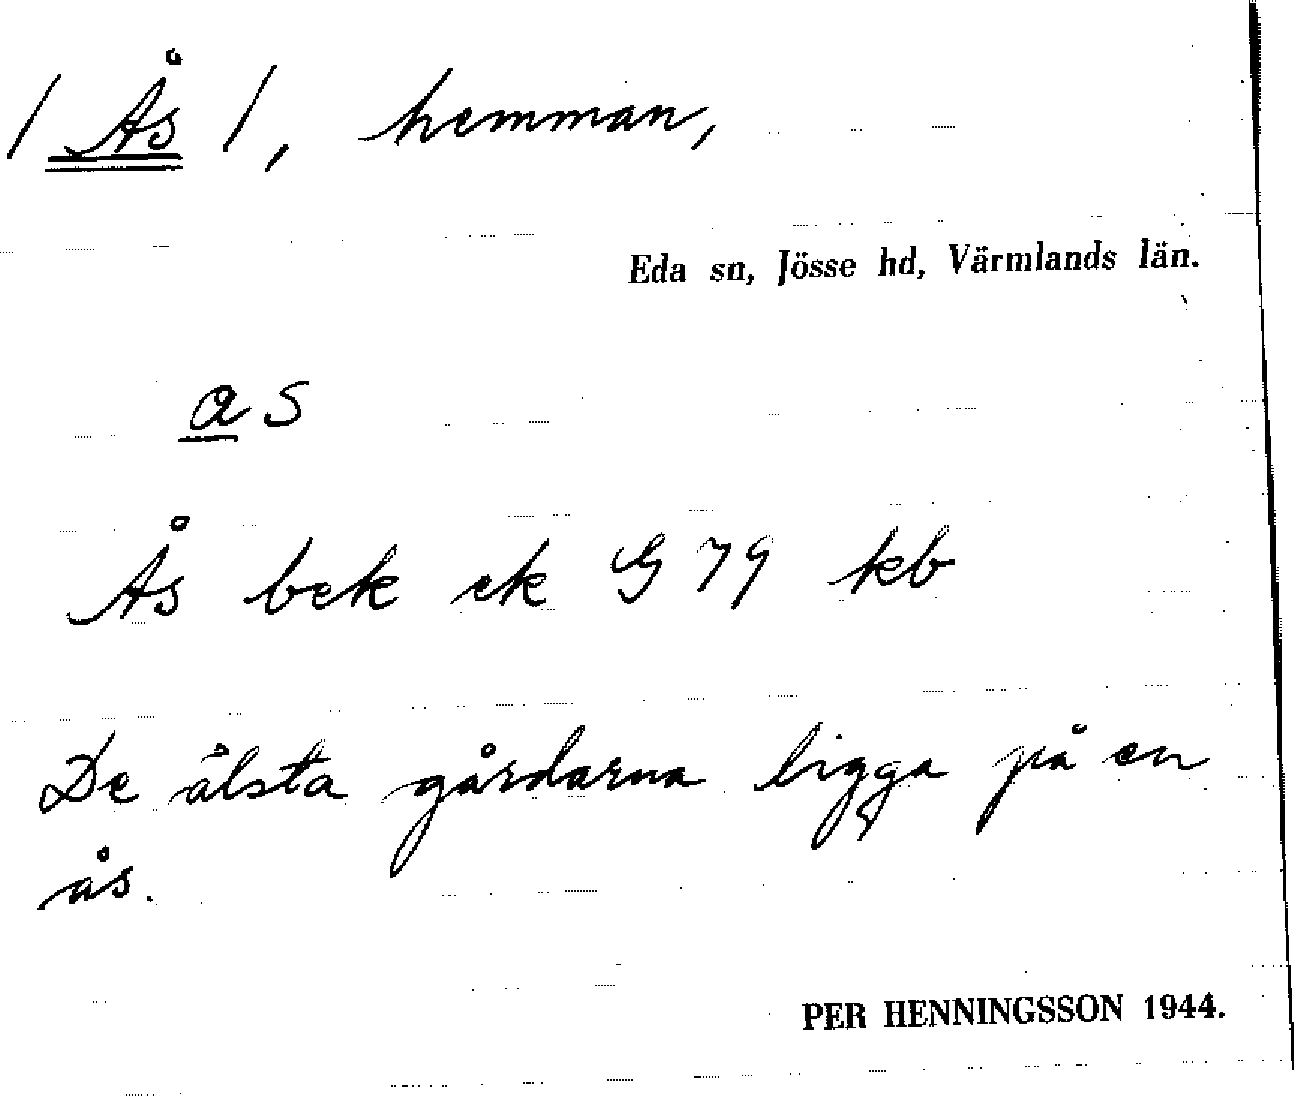 / Ås /, hemman,
Eda sn, Jösse hd, Värmlands län.
as
Ås bek ek G 79 kb
De älsta gårdarna ligga på en
ås.
PER HENNINGSSON 1944.